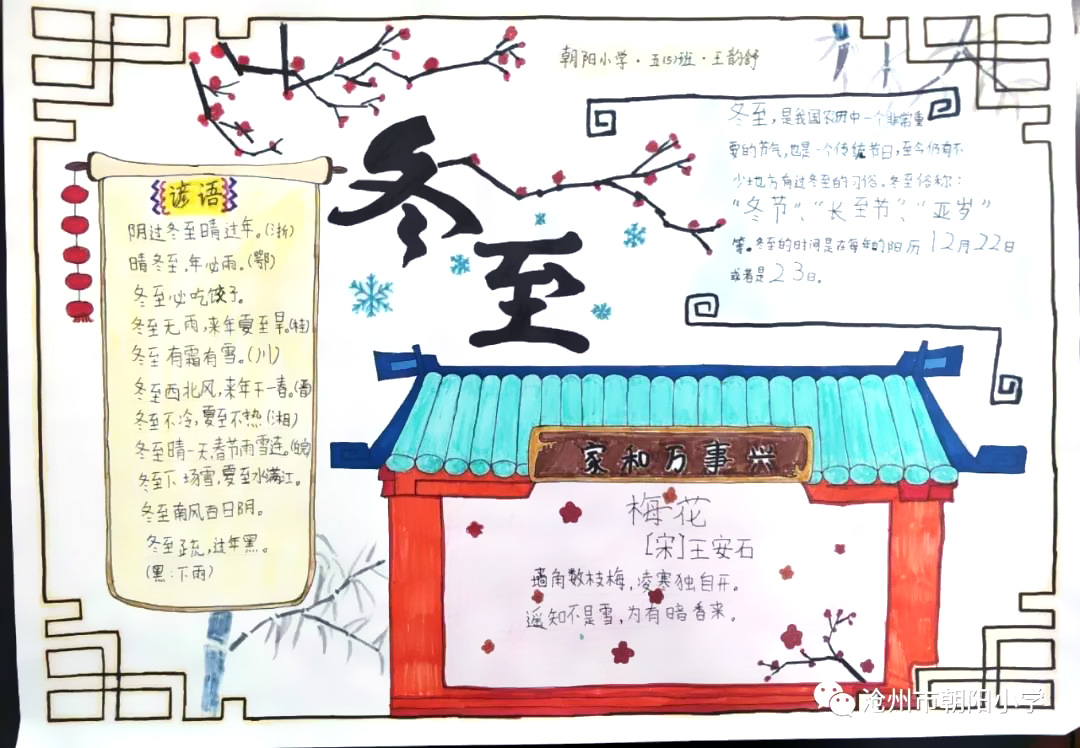 朝阳小学·五(5)班·王韵舒
冬至
冬至，是我国农历中一个非常重
要的节气，也是一个传统节日，至今仍有不
少地方有过冬至的习俗。冬至俗称：
“冬节”、“长至节”、“亚岁”
等。冬至的时间是在每年的阳历12月22日
或者是23日。
谚语
阴过冬至晴过年。(浙)
晴冬至，年必雨。(鄂)
冬至必吃饺子。
冬至无雨，来年夏至旱。(桂)
冬至有霜有雪。(川)
冬至西北风，来年干一春。
冬至不冷，夏至不热(湘)
冬至晴一天，春节雨雪连。(皖)
冬至下场雪，夏至水满江。
冬至南风百日阴。
冬至疏，过年黑。
(黑：下雨)
家和万事兴
梅花
[宋]王安石
墙角数枝梅，凌寒独自开。
遥知不是雪，为有暗香来。
沧州市朝阳小学